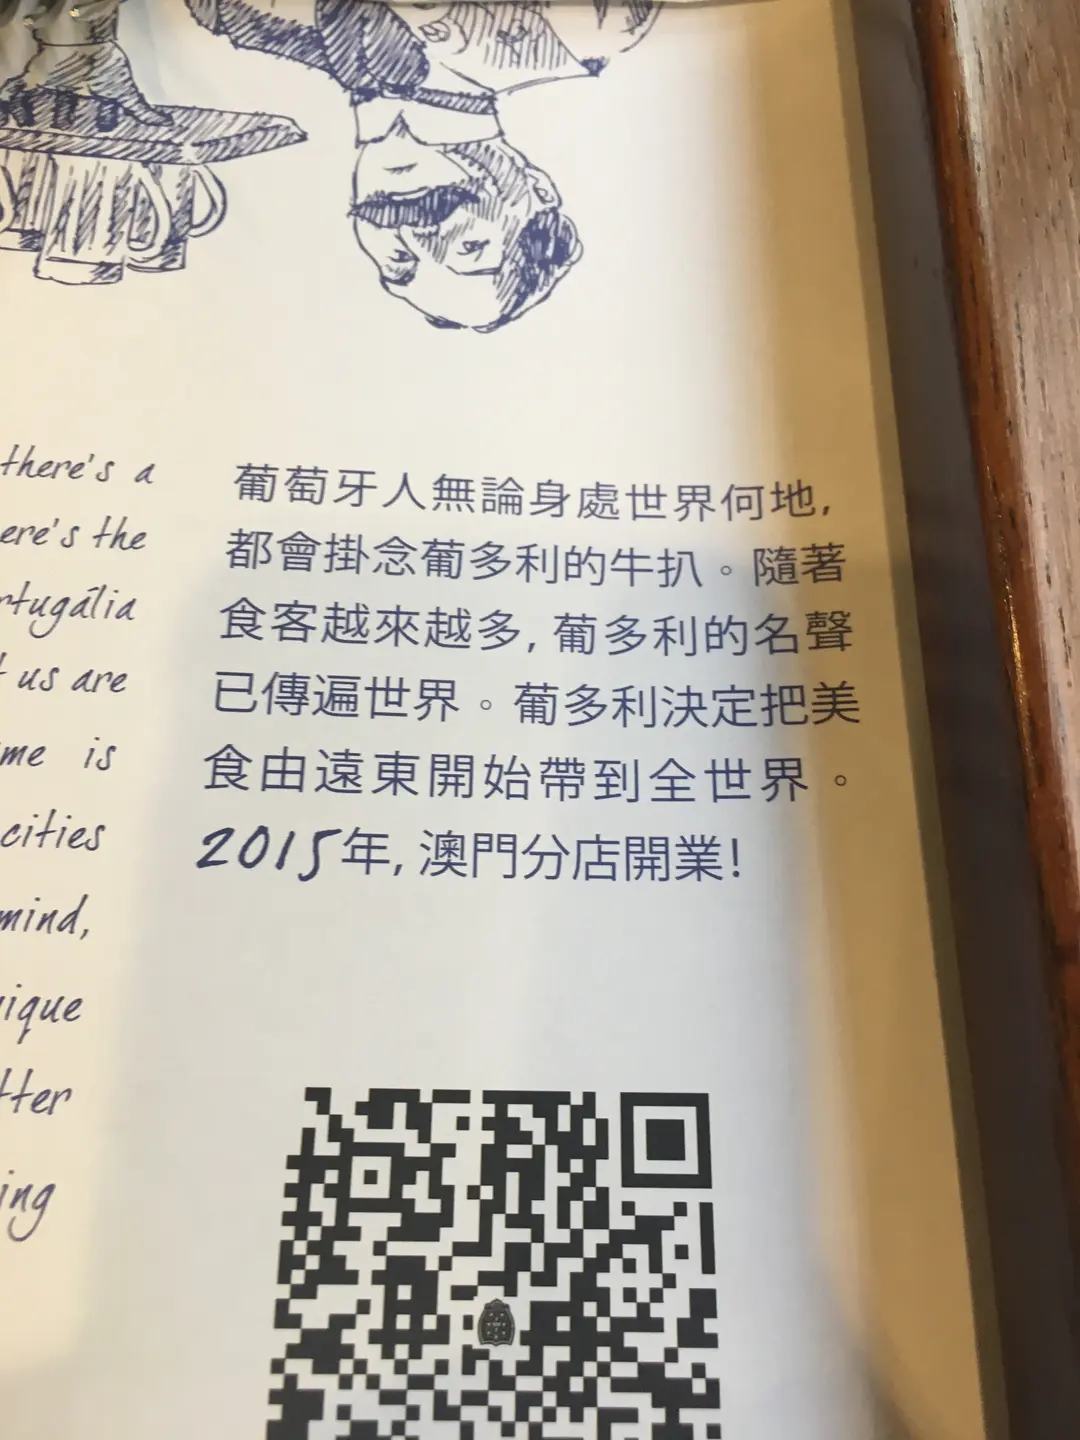 there's a
ere's the
rtugália
us are
me is
cities
mind,
ique
tter
ing
葡萄牙人無論身處世界何地,
都會掛念葡多利的牛扒。隨著
食客越來越多,葡多利的名聲
已傳遍世界。葡多利決定把美
食由遠東開始帶到全世界。
2015年,澳門分店開業!